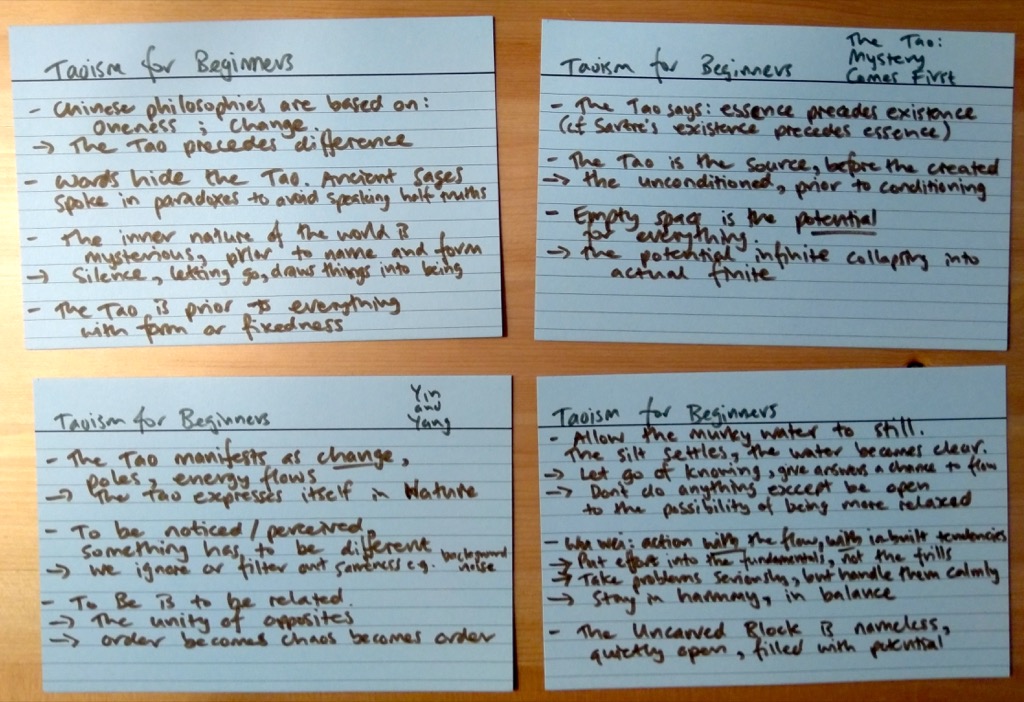 Taoism for Beginners
- Chinese philosophies are based on:
oneness ; change.
→ The Tao precedes difference
- Words hide the Tao. Ancient Sages
spoke in paradoxes to avoid speaking half truths
- The inner nature of the world is
mysterious, prior to name and form
→ Silence, letting go, draws things into being
- The Tao is prior to everything
with form or fixedness
Taoism for Beginners
The Tao:
Mystery
Comes First
- The Tao says: essence precedes existence
(cf Sartre's existence precedes essence)
- The Tao is the source, before the created
→ the unconditioned, prior to conditioning
- Empty space is the potential
for everything.
→ the potential infinite collapsing into
actual finite
Taoism for Beginners
Yin
and
Yang
- The Tao manifests as change,
poles, energy flows
→ The Tao expresses itself in Nature
- To be noticed / perceived,
something has to be different
→ we ignore or filter out sameness e.g. background
noise
- To Be is to be related.
→ The unity of opposites
→ order becomes chaos becomes order
Taoism for Beginners
- Allow the murky water to still.
The silt settles, the water becomes clear.
→ Let go of knowing, give answers a chance to flow
→ Don't do anything except be open
to the possibility of being more relaxed
- Wu wei: action with the flow, with inbuilt tendencies
→ Put effort into the fundamentals, not the frills
→ Take problems seriously, but handle them calmly
→ Stay in harmony, in balance
- The Uncarved Block is nameless,
quietly open, filled with potential